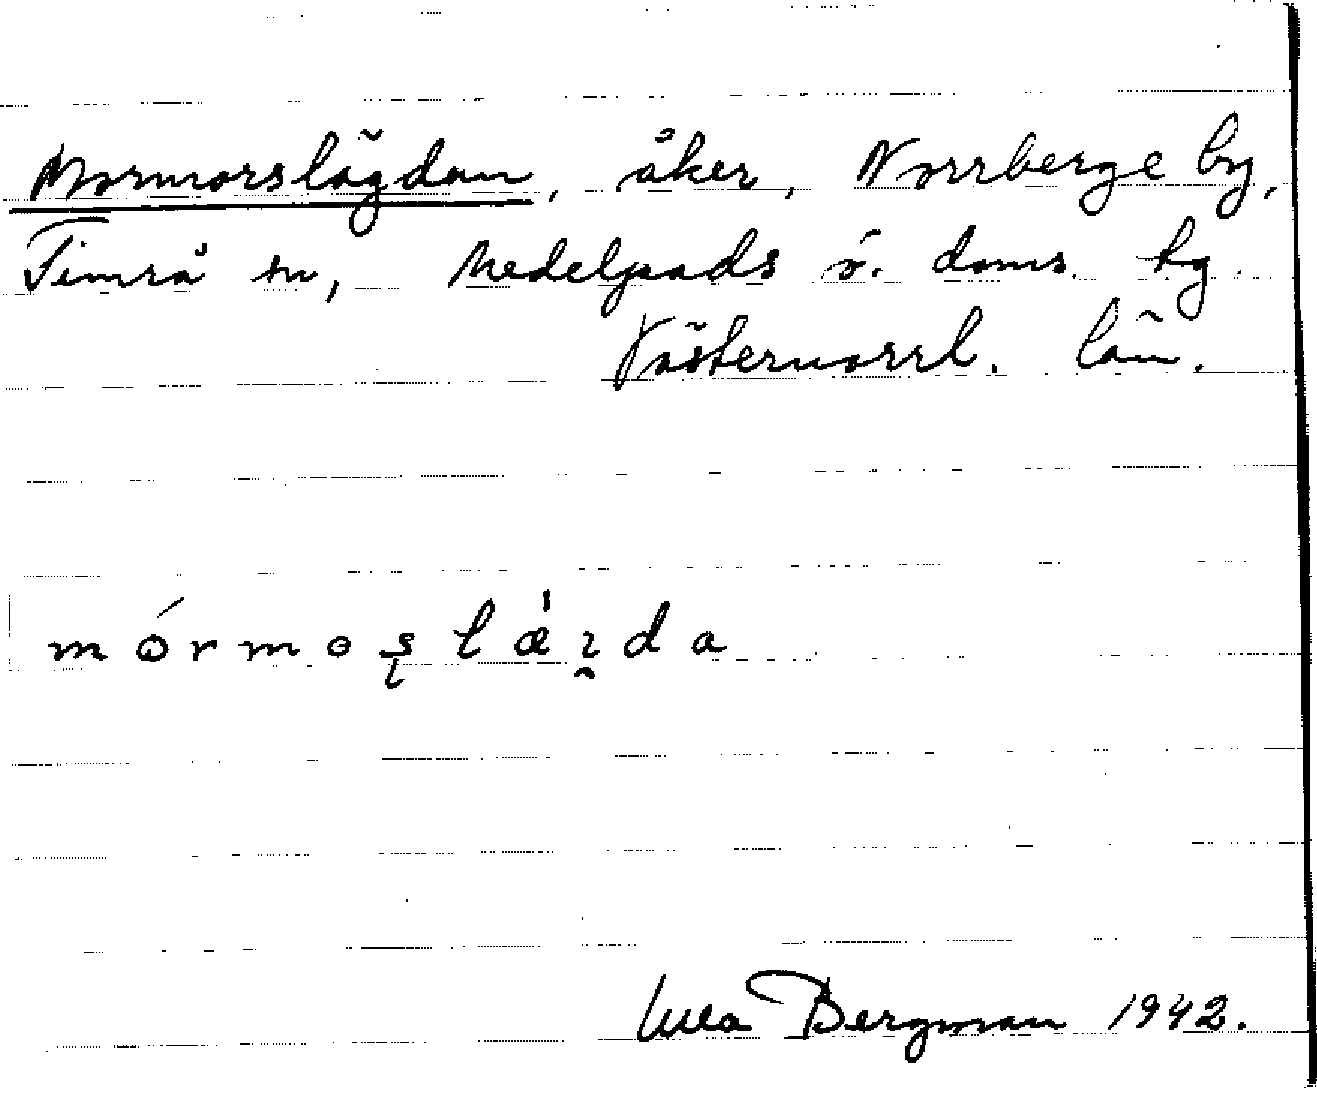 Mormorslägdan, åker, Norrberge by,
Timrå sn, Medelpads ö. doms. tg
Västernorrl. län.
mórmoşlǽɿ̰da
Bergman 1942.